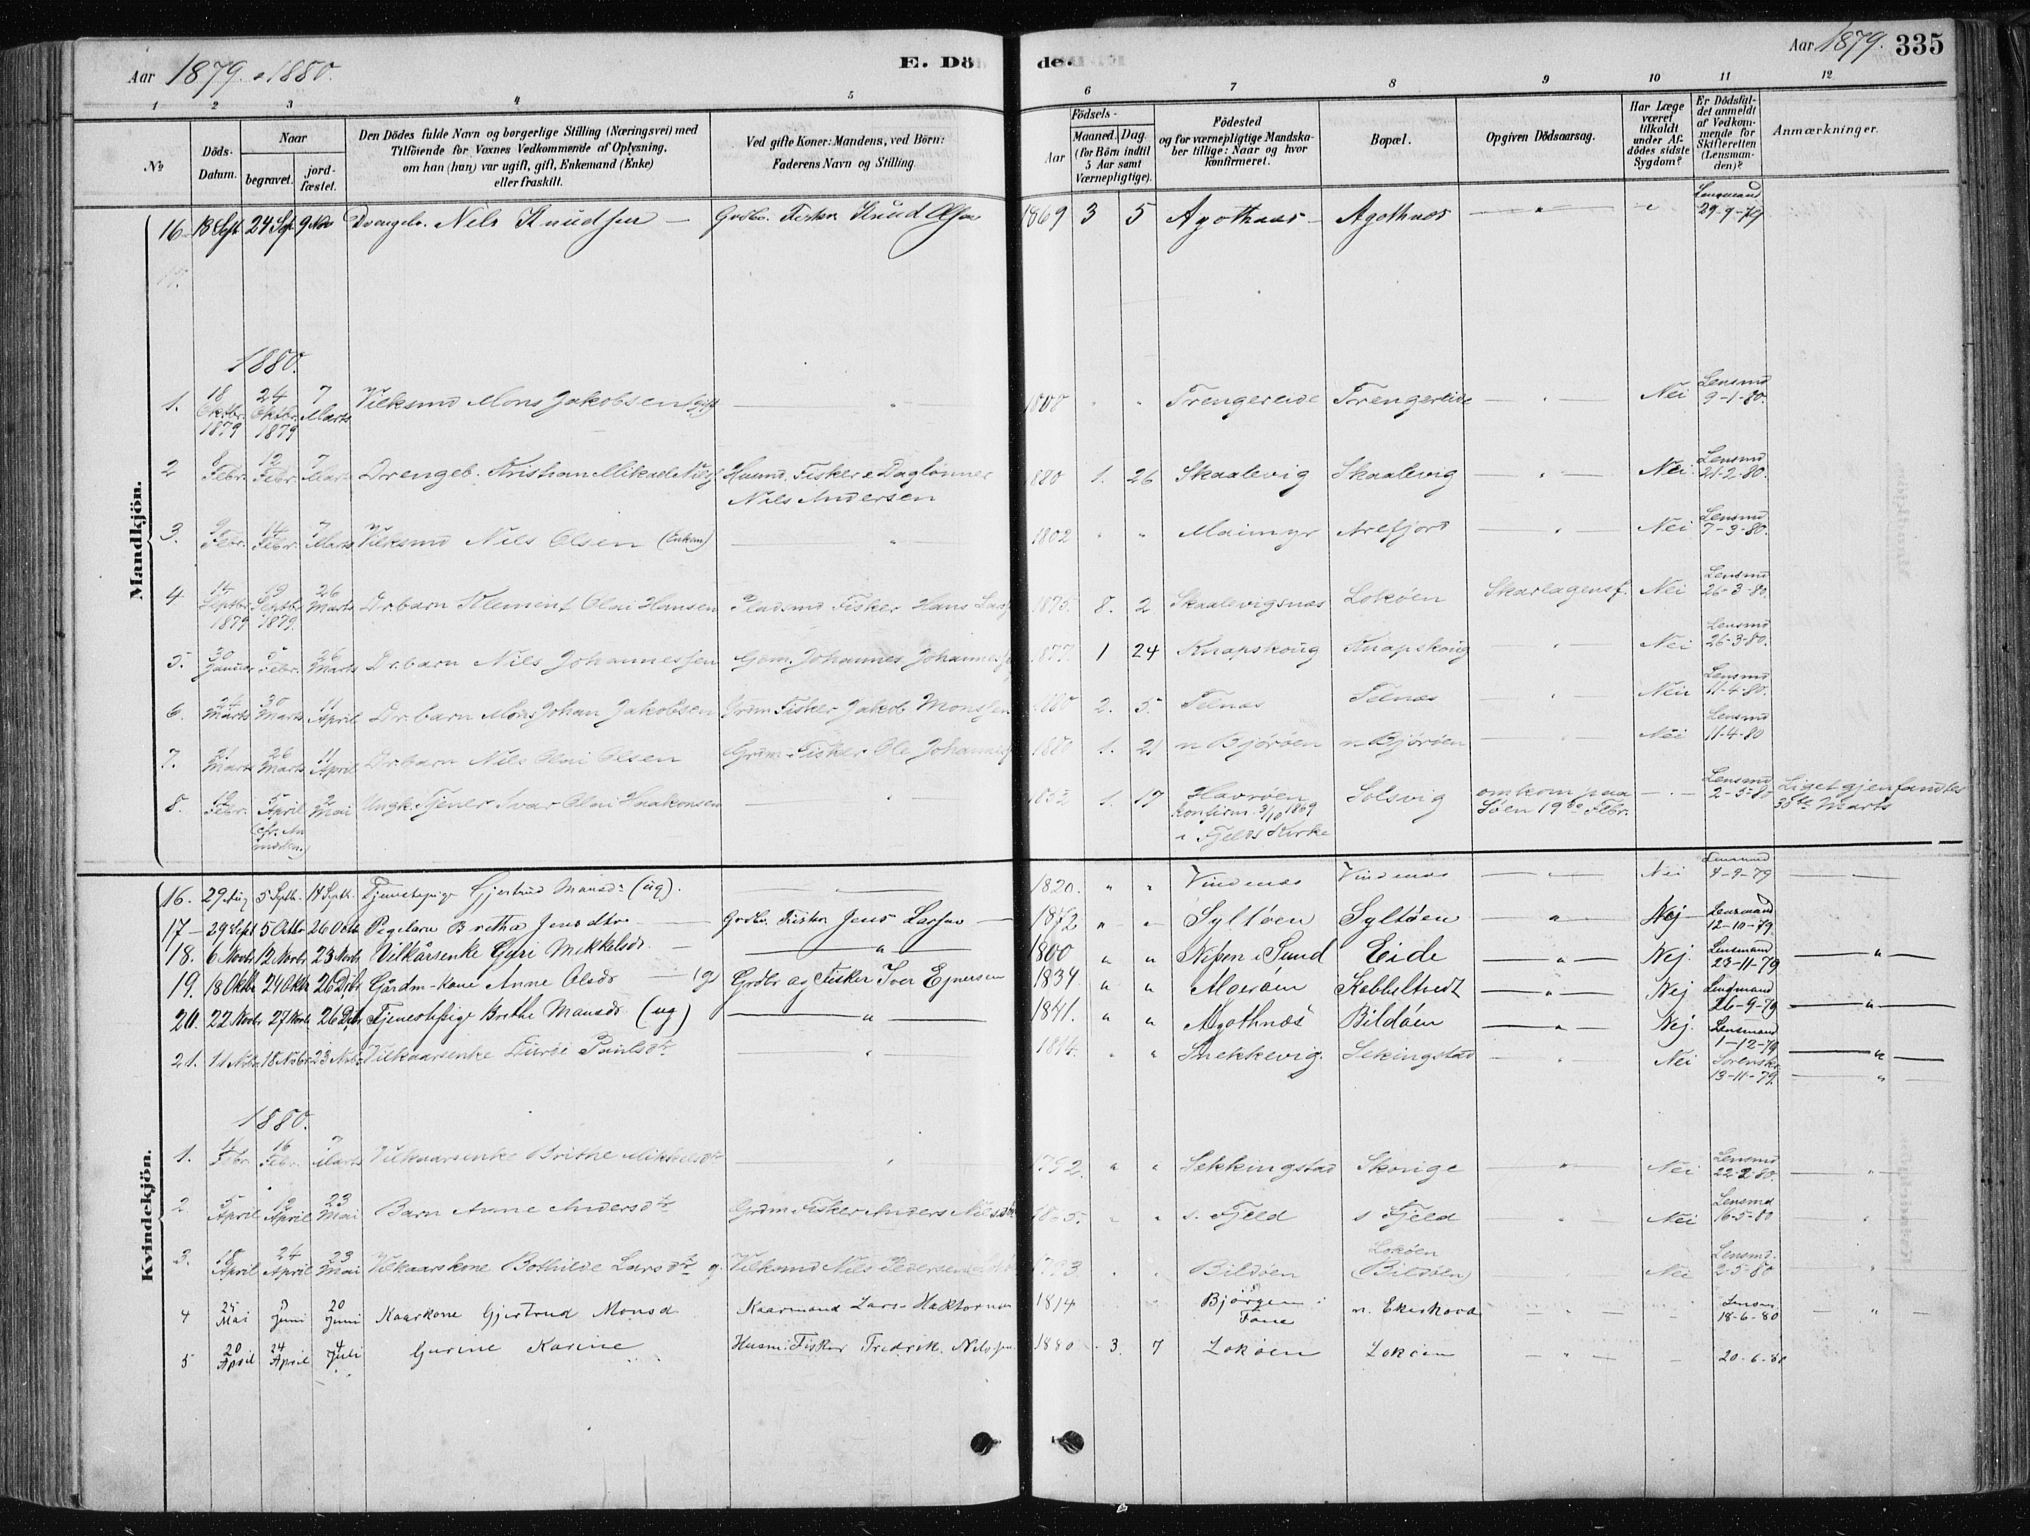 Aar 1879 & 1880.
E. Döde.
Aar 1879. 335
1 2 3 4 5 6 7 8 9 10 11 12
No
Döds-Datum.
Naar
begravet.
jord-fæstet.
Den Dödes fulde Navn og borgerlige Stilling (Næringsvei) med
Tilföiende for Voxnes Vedkommende af Oplysning,
om han (hun) var ugift, gift, Enkemand (Enke)
eller fraskilt.
Ved gifte Koner: Mandens, ved Börn:
Faderens Navn og Stilling
Födsels-
Aar
Maaned. Dag.
(for Börn indtil
5 Aar samt
Værnepligtige).
Födested
og for værnepligtige Mandska-
ber tillige: Naar og hvor
konfirmeret.
Bopæl.
Opgiven Dödsaarsag.
Har Læge
været
tilkaldt
under Af-
dödes sidste
Sygdom?
Er Dödsfal-
det anmeldt
af Vedkom-
mende for
Skifteretten
(Lensman-
den)?
Anmærkninger.
Mandkjön.
16 13 Sept 24 Spt 9 Nov Drengeb. Nils Knudsen — Grdbr. Fisker Knud Olsen 1869 3 5 Agotnæs Agothnæs — " — " Lensmand 29-9-79
17.
1880.
1. 18 Oktbr. 1879 24 Oktbr. 1879 7 Marts Vilksmd Mons Jakobsen (gift — " 1808 " " Trengereide Trengereide — " — Nei Lensmd 9-1-80.
2 8 Febr. 12 Febr. 7 Marts Drengeb. Kristian Mikael Nilss Husmd. Fisker & Daglönner Nils Andersen 1880 1. 26 Skaalevig Skaalevig — " — Nei Lensmd 21-2-80.
3. 9 Febr. 14 Febr. 7 Marts Vilksmd Nils Olsen (Enkem) — " 1802 " " Maimyr Arefjord — " — Nei Lensmd 7-3-80.
4 14 Septbr 1879 19 Septbr 1879. 26 Marts Dr.barn Klement Olai Hansen Pladsmd Fisker Hans Lars 1875. 8. 2 Skaalevigsnæs Lokøen Skarlagensf. Nei Lensmd 26-3-80.
5. 30 Januar Febr. 26 Marts Dr.barn Nils Johannessen Grdm. Johannes Johanness 1877. 1 24 Knapskoug Knapskoug — " — Nei Lensmd 26-3-80.
6. 24 Marts 30 Marts 11 April Dr.barn Mons Johan Jakobsen Grdm Fisker Jakob Monssen 1880 2. 5. Telnæs Telnæs — " — Nei Lensmd 11-4-80.
7. 21 Marts 26 Marts 11 April Dr.barn Nils Olai Olsen Grdm. Fisker Ole Johanness 1880 1. 21 n Bjorøen n Bjørøen — " — Nei Lensmd 11-4-80
8. 19 Febr. 5 April (cfr. Anmærkn.) 2 Mai Ungk. Tjener Ivar Olai Haakonsen — " 1852 1. 17 Havrøen konfirm. 3/10 1869 i Fjelds Kirke Solsvig omkom paa Søen 19de Febr. — " — Lensmd 2-5-80. Liget gjenfandtes 30te Marts
Kvindekjön.
16. 29 Aug 5 Septb. 14 Septb. Tjenestepige Gjertrud Monsdr (ug). — 1820. " " Vindenæs Vindenæs — Nei Lensmand 4-9-79
17 29 Sept 5 Octbr 26 Octb Pigebarn Brethe Jensdtr — Grdbr. Fisker Jens Larsen — 1872 " " Syltøen Syltøen — " — Nej Lensmand 12-10-79.
18. 6 Novbr 12 Novbr 23 Novbr Vilkårsenke Guri Mikkelsdr. — " — 1800 " " Nipen i Sund Eide — " — Nej. Lensmand 23-11-79 — " —
19. 18 Oktbr 24 Oktbr 26 Dcbr Gårdm-Kone Anne Olsdr — (g) Grdbr og Fisker Iver Ejnersen 1834 " " Algerøen Kobbeltvedt — " — Nej Lensmand 26-9-79 — " —
20. 22 Novbr 27 Novbr 26 Dcbr Tjenestepige Brithe Monsdr (ug) — " — 1841. " " Agothnæs Bildøen — " — Nej. Lensmand 1-12-79 — " —
21. 11 Nobr 18 Nobr 23 Nobr Vilkaarsenke Durdi Poulsdtr " 1814. " " Snekkevig. Sekingstad — " — Nei Sorenskr 13-11-79. — " —
1880.
1. 14 Febr. 16 Febr. 7 Marts Vilkaarsenke Brithe Mikkelsdtr — " 1792. " " Sekkingstad Skorige — " — Nei Lensmd 22-2-80. "
2. 5 April 12 April 23 Mai Barn Anne Andersdtr Grdm Fisker Anders Nils 1865. " " s. Fjeld s Fjeld — " — Nei Lensmd 16-5-80 "
3. 18 April 24 April 23 Mai Vilkaarskone Bothilde Larsdtr g. Vilksmd Nils Pedersen 1793 " " Bildøen Lokøen (Bildøen) — " — Nei Lensmd. 2-5-80 "
4 25 Mai Juni 20 Juni Kaarkone Gjertrud Monsd Kaarmand Lars 1814 Bjørgen i Fane n. Ekerhovd — " — Lensm 18-6-80 "
5 20 April 24 April 4 Juli Gurine Karine Husm: Fisker Fredrik Nilssen 1880 3. 7 Lokøen Lokøen — " — 20-6-80 "